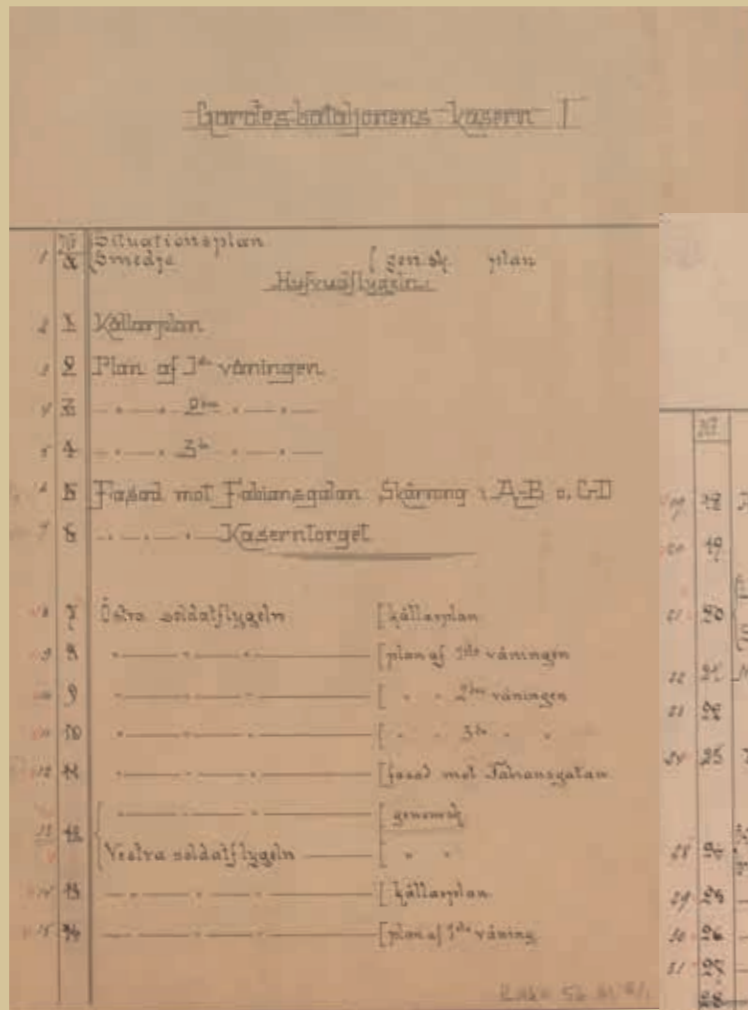 Gardesbataljonens kasern I
№
1 Situationsplan
Smedje [gen.sk. plan
Hufvudflygeln.
2 1 Källarplan
3 2 Plan af 1sta våningen
4 3 „ — „ 2dra „ — „
5 4 „ — „ 3dje „ — „
5 Fasad mot Fabiansgatan, Skärning i A-B o. C-D
7 6 „ „ „ Kaserntorget
7 Östra soldatflygeln [källarplan
9 8 „ — „ — „ [plan af 1sta våningen
9 „ — „ — „ [ „ „ 2dra våningen
10 „ — „ — „ [ „ „ 3dje „ „
12 11 „ — „ — „ [fasad mot Fabiansgatan
13 12 „ — „ — „ [genomsk
Vestra soldatflygeln [ „ „
14 13 „ — „ — „ [källarplan
15 14 „ — „ — „ [plan af 1sta våning
№
18
20 19
21 20
22 21
23 22
24 23
28 24
29 25
30 26
31 27
28